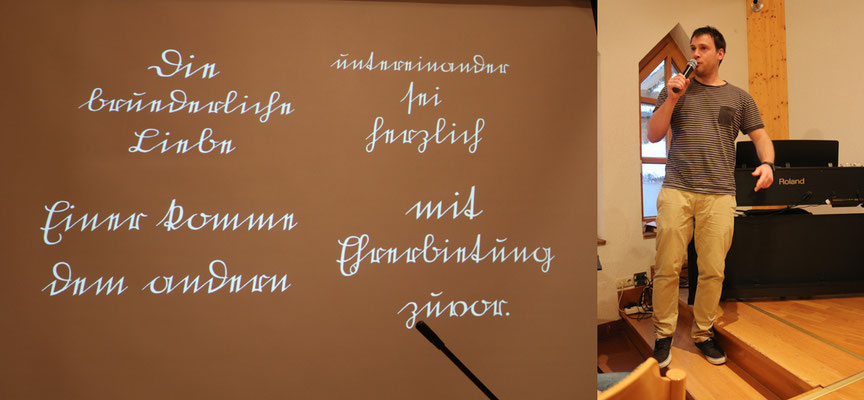 Die
bruederliche
Liebe
untereinander
sei
herzlich
Einer komme
dem andern
mit
Ehrerbietung
zuvor.
Roland